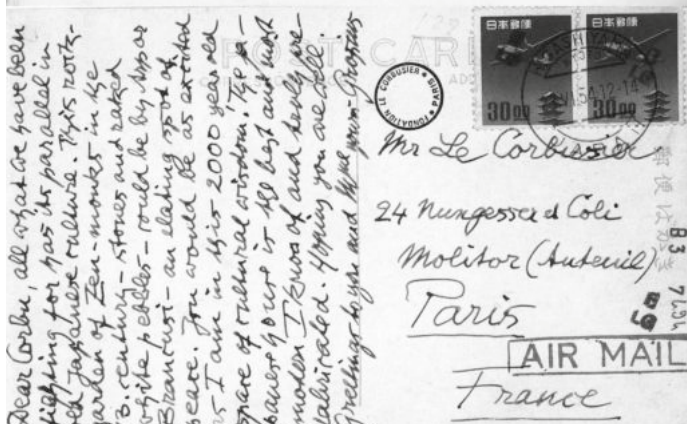 Dear Corbu, all what we have been
fighting for has its parallel in
old Japanese culture. This rock-
garden of Zen-monks in the
13. century - stones and raked
white pebbles - could be by Arp or
Brancusi - an elating spot of
peace. You would be as excited
as I am in this 2000 year old
space of cultural wisdom! The Ja-
panese house is the best and most
modern I know of and really pre-
fabricated. Hoping you are well.
Greetings to you and your Gropius
POST CARD
FONDATION LE CORBUSIER * PARIS
日本郵便
30 00
日本郵便
30 00
VI.54.12-14
Mr Le Corbusier
24 Nungesser et Coli
Molitor (Auteuil)
Paris
France
AIR MAIL
郵便はがき
B3